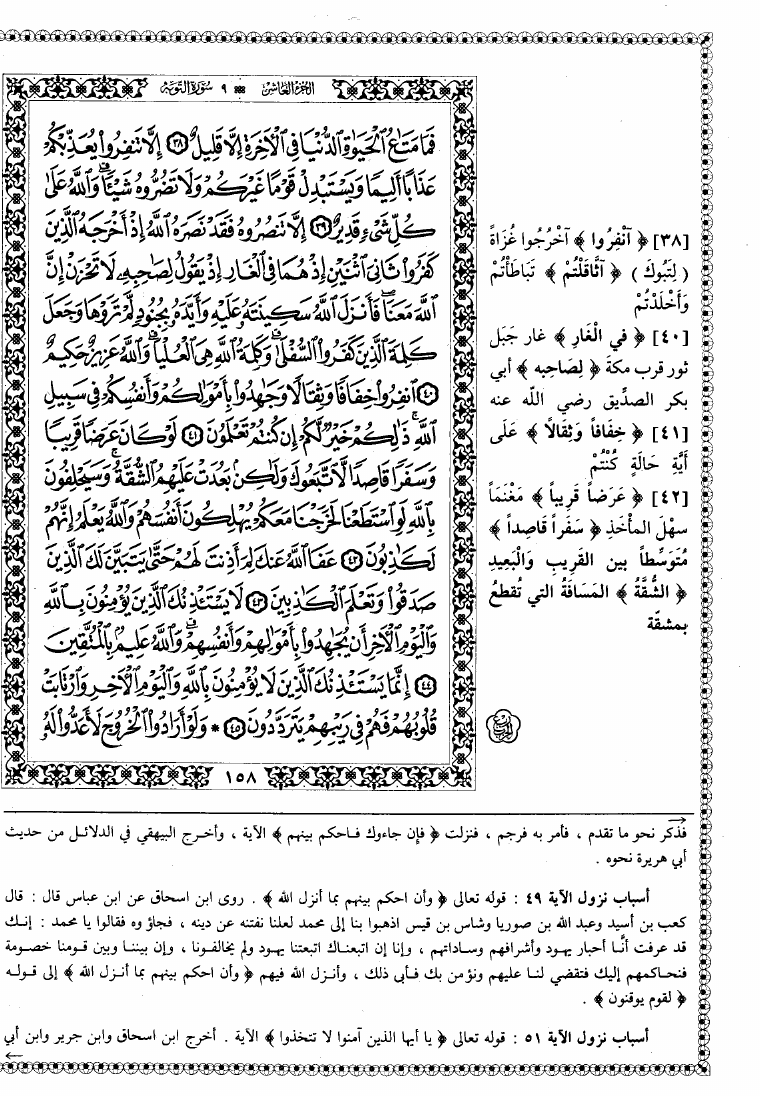 الجزء العاشر ٩ سورة التوبة
فَمَا مَتَاعُ الْحَيَوٰةِ الدُّنْيَا فِي الْآخِرَةِ إِلَّا قَلِيلٌ ﴿٣٨﴾ إِلَّا تَنفِرُوا يُعَذِّبْكُمْ
عَذَابًا أَلِيمًا وَيَسْتَبْدِلْ قَوْمًا غَيْرَكُمْ وَلَا تَضُرُّوهُ شَيْئًا وَاللَّهُ عَلَىٰ
كُلِّ شَيْءٍ قَدِيرٌ ﴿٣٩﴾ إِلَّا تَنصُرُوهُ فَقَدْ نَصَرَهُ اللَّهُ إِذْ أَخْرَجَهُ الَّذِينَ
كَفَرُوا ثَانِيَ اثْنَيْنِ إِذْ هُمَا فِي الْغَارِ إِذْ يَقُولُ لِصَاحِبِهِ لَا تَحْزَنْ إِنَّ
اللَّهَ مَعَنَا فَأَنزَلَ اللَّهُ سَكِينَتَهُ عَلَيْهِ وَأَيَّدَهُ بِجُنُودٍ لَّمْ تَرَوْهَا وَجَعَلَ
كَلِمَةَ الَّذِينَ كَفَرُوا السُّفْلَىٰ وَكَلِمَةُ اللَّهِ هِيَ الْعُلْيَا وَاللَّهُ عَزِيزٌ حَكِيمٌ
﴿٤٠﴾ انفِرُوا خِفَافًا وَثِقَالًا وَجَاهِدُوا بِأَمْوَالِكُمْ وَأَنفُسِكُمْ فِي سَبِيلِ
اللَّهِ ذَٰلِكُمْ خَيْرٌ لَّكُمْ إِن كُنتُمْ تَعْلَمُونَ ﴿٤١﴾ لَوْ كَانَ عَرَضًا قَرِيبًا
وَسَفَرًا قَاصِدًا لَّاتَّبَعُوكَ وَلَٰكِن بَعُدَتْ عَلَيْهِمُ الشُّقَّةُ وَسَيَحْلِفُونَ
بِاللَّهِ لَوِ اسْتَطَعْنَا لَخَرَجْنَا مَعَكُمْ يُهْلِكُونَ أَنفُسَهُمْ وَاللَّهُ يَعْلَمُ إِنَّهُمْ
لَكَاذِبُونَ ﴿٤٢﴾ عَفَا اللَّهُ عَنكَ لِمَ أَذِنتَ لَهُمْ حَتَّىٰ يَتَبَيَّنَ لَكَ الَّذِينَ
صَدَقُوا وَتَعْلَمَ الْكَاذِبِينَ ﴿٤٣﴾ لَا يَسْتَئْذِنُكَ الَّذِينَ يُؤْمِنُونَ بِاللَّهِ
وَالْيَوْمِ الْآخِرِ أَن يُجَاهِدُوا بِأَمْوَالِهِمْ وَأَنفُسِهِمْ وَاللَّهُ عَلِيمٌ بِالْمُتَّقِينَ
﴿٤٤﴾ إِنَّمَا يَسْتَئْذِنُكَ الَّذِينَ لَا يُؤْمِنُونَ بِاللَّهِ وَالْيَوْمِ الْآخِرِ وَارْتَابَتْ
قُلُوبُهُمْ فَهُمْ فِي رَيْبِهِمْ يَتَرَدَّدُونَ ﴿٤٥﴾ * وَلَوْ أَرَادُوا الْخُرُوجَ لَأَعَدُّوا لَهُ
١٥٨
[٣٨] ﴿ آنْفِرُوا ﴾ آخْرُجُوا غُزَاةً
( لِتَبُوكَ ) ﴿ آثَّاقَلْتُمْ ﴾ تَبَاطَأْتُمْ
وَأَخْلَدْتُمْ
[٤٠] ﴿ في الْغَارِ ﴾ غار جَبَل
ثور قرب مكةَ ﴿ لِصَاحِبِه ﴾ أبي
بكر الصدِّيق رضي اللّه عنه
[٤١] ﴿ خِفَافاً وَثِقَالاً ﴾ عَلَى
أَيَّةِ حَالَةٍ كُنْتُمْ
[٤٢] ﴿ عَرَضاً قَرِيباً ﴾ مَغْنَماً
سهْلَ المأْخَذِ ﴿ سَفَراً قاصِداً ﴾
مُتَوَسِّطاً بين القَرِيبِ والْبَعِيدِ
﴿ الشُّقَّةُ ﴾ المَسَافَةُ التي تُقطعُ
بمشقّة
فذكر نحو ما تقدم ، فأمر به فرجم ، فنزلت ﴿ فإن جاءوك فاحكم بينهم ﴾ الآية ، وأخرج البيهقي في الدلائل من حديث
أبي هريرة نحوه .
أسباب نزول الآية ٤٩ : قوله تعالى ﴿ وأن احكم بينهم بما أنزل الله ﴾ . روى ابن اسحاق عن ابن عباس قال : قال
كعب بن أسيد وعبد الله بن صوريا وشاس بن قيس اذهبوا بنا إلى محمد لعلنا نفتنه عن دينه ، فجاؤ وه فقالوا يا محمد : إنك
قد عرفت أنَّا أحبار يهود وأشرافهم وساداتهم ، وإنا إن اتبعناك اتبعتنا يهود ولم يخالفونا ، وإن بيننا وبين قومنا خصومة
فنحاكمهم إليك فتقضي لنا عليهم ونؤمن بك فأبى ذلك ، وأنزل الله فيهم ﴿ وأن احكم بينهم بما أنزل الله ﴾ إلى قوله
﴿ لقوم يوقنون ﴾ .
أسباب نزول الآية ٥١ : قوله تعالى ﴿ يا أيها الذين آمنوا لا تتخذوا ﴾ الآية . أخرج ابن اسحاق وابن جرير وابن أبي